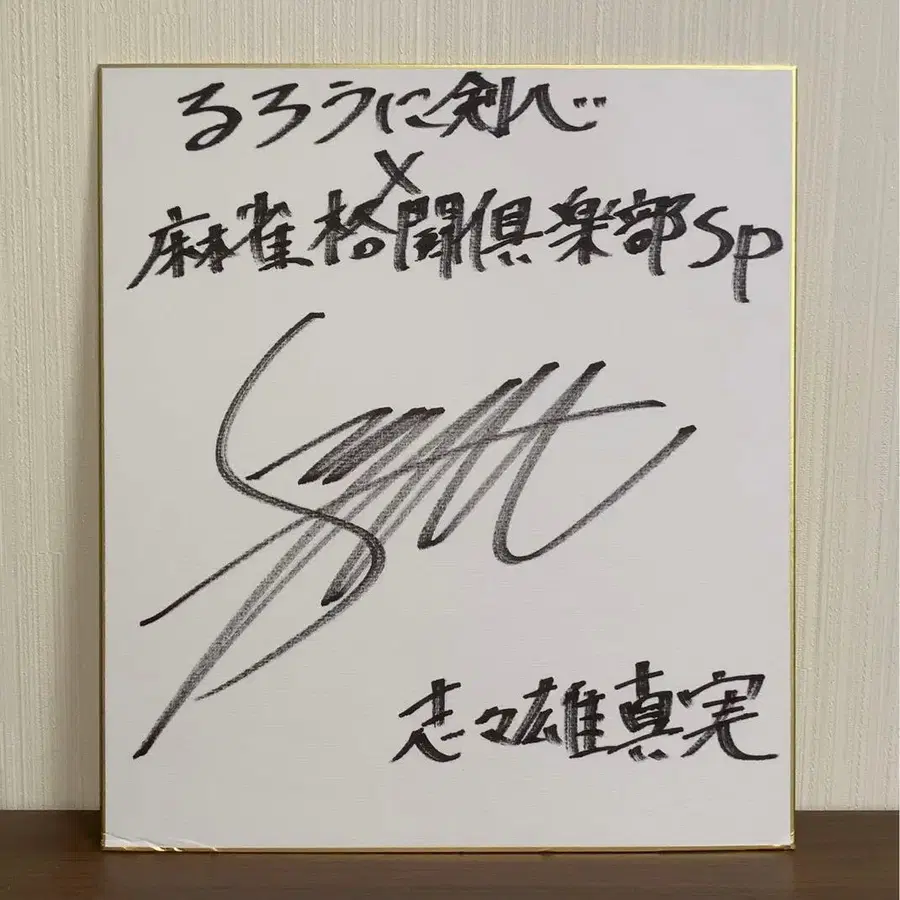 るろうに剣心
×
麻雀格闘倶楽部Sp
志々雄真実